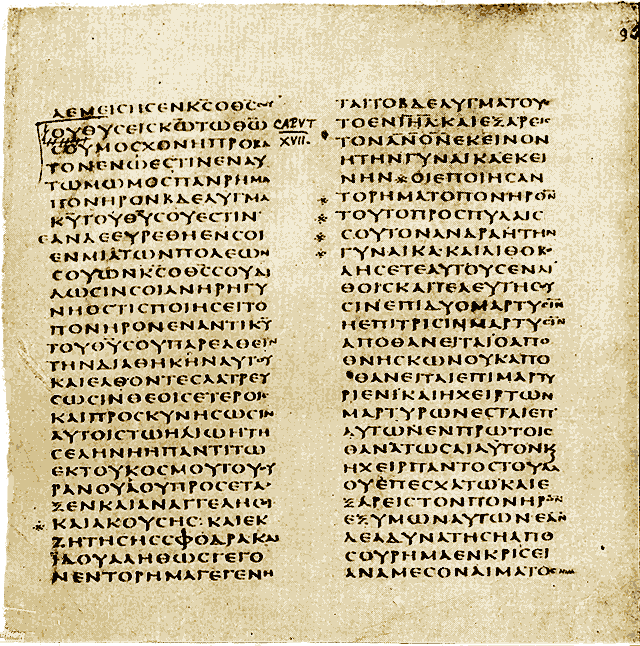 ΑΕΜΕΙCΗCΕΝΚ̅C̅ΟΘ̅C̅
ΟΥΘΥCΕΙCΚ̅Ω̅ΤΩΘ̅Ω̅ CAPVT
CΟΥΜΟCΧΟΝΗΠΡΟΒΑ XVII.
ΤΟΝΕΝΩΕCΤΙΝΕΝΑΥ
ΤΩΜΩΜΟCΠΑΝΡΗΜΑ
ΠΟΝΗΡΟΝΒΔΕΛΥΓΜΑ
ΚΥΤΟΥΘ̅Υ̅CΟΥΕCΤΙΝ
ΕΑΝΔΕΕΥΡΕΘΗΕΝCΟΙ
ΕΝΜΙΑΤΩΝΠΟΛΕΩΝ
CΟΥΩΝΚ̅C̅ΟΘ̅C̅CΟΥΔΙ
ΔΩCΙΝCΟΙΑΝΗΡΗΓΥ
ΝΗΟCΤΙCΠΟΙΗCΕΙΤΟ
ΠΟΝΗΡΟΝΕΝΑΝΤΙΚ̅Υ̅
ΤΟΥΘ̅Υ̅CΟΥΠΑΡΕΛΘΕΙΝ
ΤΗΝΔΙΑΘΗΚΗΝΑΥΤΟΥ
ΚΑΙΕΛΘΟΝΤΕCΛΑΤΡΕΥ
CΩCΙΝΘΕΟΙCΕΤΕΡΟΙC
ΚΑΙΠΡΟCΚΥΝΗCΩCΙΝ
ΑΥΤΟΙCΤΩΗΛΙΩΗΤΗ
CΕΛΗΝΗΗΠΑΝΤΙΤΩ
ΕΚΤΟΥΚΟCΜΟΥΤΟΥΟΥ
ΡΑΝΟΥΑΟΥΠΡΟCΕΤΑ
ΞΕΝΚΑΙΑΝΑΓΓΕΛΗCΟΙ
※ ΚΑΙΑΚΟΥCΗC:ΚΑΙΕΚ
ΖΗΤΗCΗCCΦΟΔΡΑΚΑΙ
ΙΔΟΥΑΛΗΘΩCΓΕΓΟ
ΝΕΝΤΟΡΗΜΑΓΕΓΕΝΗ
ΤΑΙΤΟΒΔΕΛΥΓΜΑΤΟΥ
ΤΟΕΝΙ̅Η̅Λ̅ΚΑΙΕΞΑΡΕΙC
ΤΟΝΑΝ̅Ο̅Ν̅ΕΚΕΙΝΟΝ
ΗΤΗΝΓΥΝΑΙΚΑΕΚΕΙ
ΝΗΝ※ΟΙΕΠΟΙΗCΑΝ
※ ΤΟΡΗΜΑΤΟΠΟΝΗΡΟΝ
※ ΤΟΥΤΟΠΡΟCΠΥΛΑΙC
※ CΟΥΤΟΝΑΝΔΡΑΗΤΗΝ
※ ΓΥΝΑΙΚΑ·ΚΑΙΛΙΘΟΒΟ
ΛΗCΕΤΕΑΥΤΟΥCΕΝΛΙ
ΘΟΙCΚΑΙΤΕΛΕΥΤΗCΟΥ
CΙΝΕΠΙΔΥΟΜΑΡΤΥCΙΝ
ΗΕΠΙΤΡΙCΙΝΜΑΡΤΥCΙΝ
ΑΠΟΘΑΝΕΙΤΑΙΟΑΠΟ
ΘΝΗCΚΩΝΟΥΚΑΠΟ
ΘΑΝΕΙΤΑΙΕΠΙΜΑΡΤΥ
ΡΙΕΝΙΚΑΙΗΧΕΙΡΤΩΝ
ΜΑΡΤΥΡΩΝΕCΤΑΙΕΠ
ΑΥΤΩΝΕΝΠΡΩΤΟΙC
ΘΑΝΑΤΩCΑΙΑΥΤΟΝΚ
ΗΧΕΙΡΠΑΝΤΟCΤΟΥΛΑ
ΟΥΕΠΕCΧΑΤΩΚΑΙΕ
ΞΑΡΕΙCΤΟΝΠΟΝΗΡΟΝ
ΕΞΥΜΩΝΑΥΤΩΝΕΑΝ
ΔΕΑΔΥΝΑΤΗCΗΑΠΟ
CΟΥΡΗΜΑΕΝΚΡΙCΕΙ
ΑΝΑΜΕCΟΝΑΙΜΑΤΟC